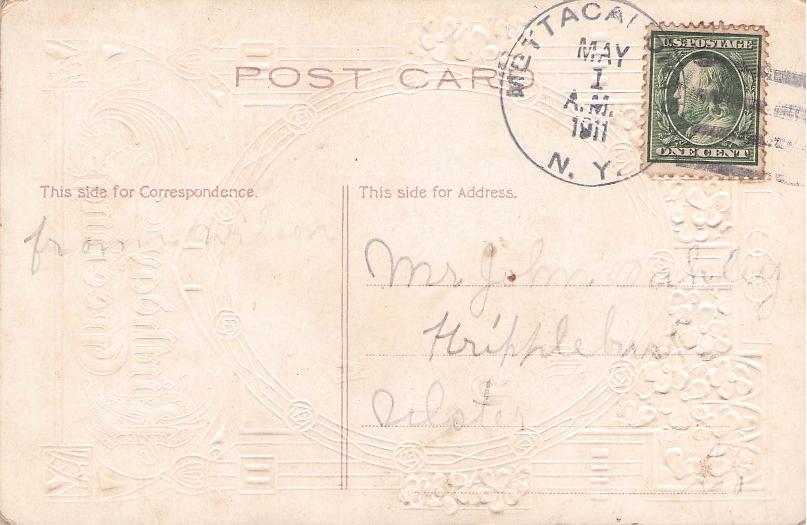 METTACAHO
MAY
1
A.M.
1911
N. Y.
U.S. POSTAGE
ONE CENT
POST CARD
This side for Correspondence.
This side for Address.
from Wilson
Mr John Oakley
Kripplebush
Ulster